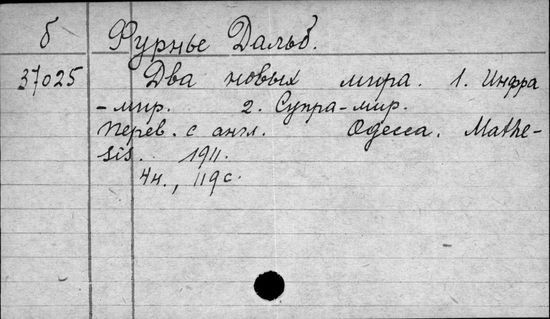 б Фурнье Дальб.
37025 Два новых мира. 1. Инфра
-мир. 2. Супра-мир.
Перев. с англ. Одесса. Mathe-
sis. 1911.
4н., 119 с.